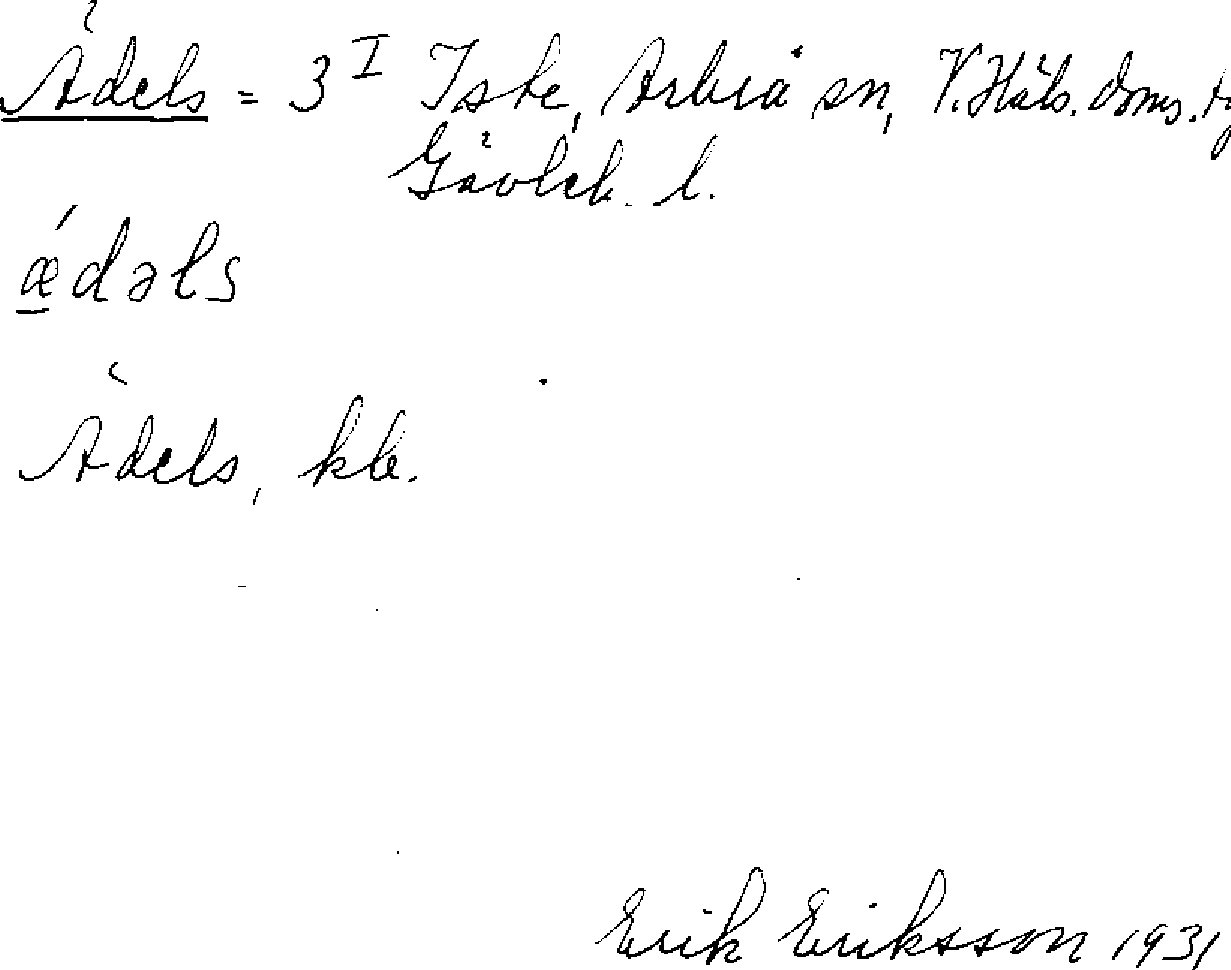 Ädels = 3 I Iste, Arbrå sn, V. Häls. doms.
Gävleb. l.
ǽdəls
Ädels, kb.
Erik Eriksson 1931